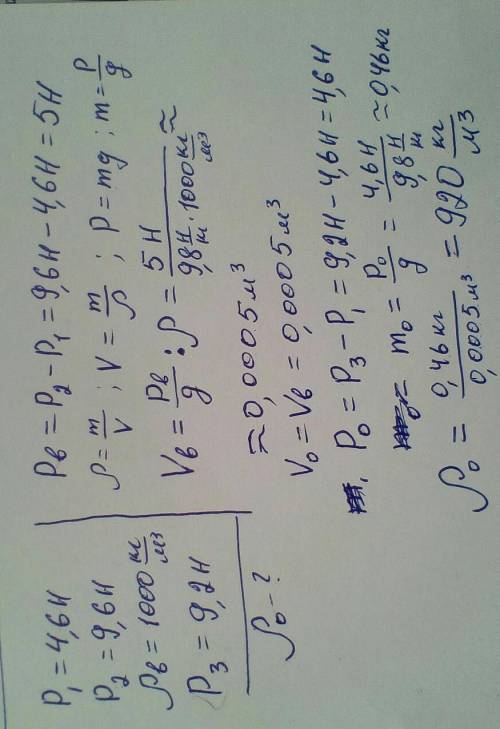 P₁ = 4,6Н
P₂ = 9,6Н
ρв = 1000 кг/м³
P₃ = 9,2Н
ρ₀ - ?
Pв = P₂ - P₁ = 9,6Н - 4,6Н = 5Н
ρ = m/V ; V = m/ρ ; P = mg ; m = P/g
Vв = Pв/g : ρ = 5Н / 9,8 Н/кг · 1000 кг/м³ ≈
≈ 0,0005 м³
V₀ = Vв = 0,0005 м³
P₀ = P₃ - P₁ = 9,2Н - 4,6Н = 4,6Н
m₀ = P₀/g = 4,6Н / 9,8 Н/кг ≈ 0,46кг
ρ₀ = 0,46кг / 0,0005м³ = 920 кг/м³